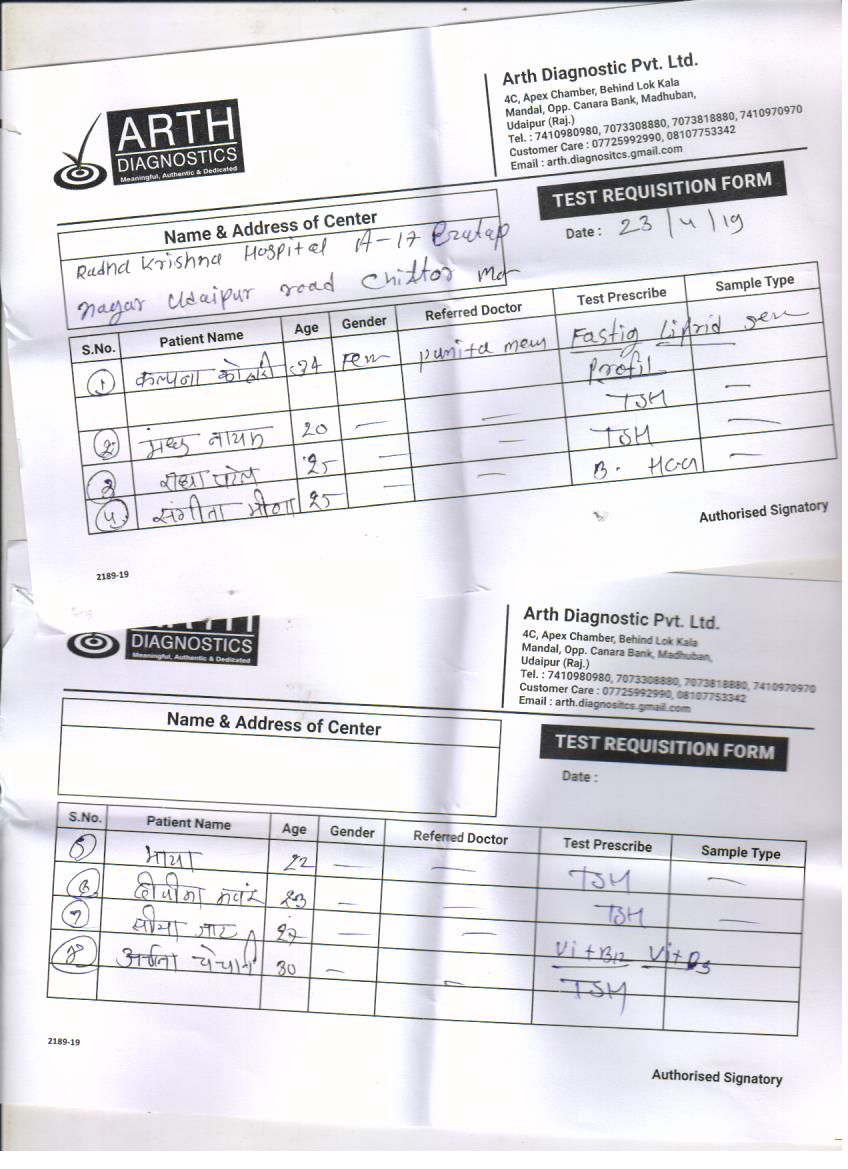 ARTH
DIAGNOSTICS
Meaningful, Authentic & Dedicated
Arth Diagnostic Pvt. Ltd.
4C, Apex Chamber, Behind Lok Kala
Mandal, Opp. Canara Bank, Madhuban,
Udaipur (Raj.)
Tel. : 7410980980, 7073308880, 7073818880, 7410970970
Customer Care : 07725992990, 08107753342
Email : arth.diagnositcs.gmail.com
TEST REQUISITION FORM
Date : 23/4/19
Name & Address of Center
Radha Krishna Hospital A-17 Pratap
nagar Udaipur road Chittor
S.No. Patient Name Age Gender Referred Doctor Test Prescribe Sample Type
1 कल्पना 34 Fem punita mem Fastig Lifrid
Profil
TSH —
2 नायक 20 — — TSH —
3 राधा 25 — — B. HCG —
4 संगीता मीणा 25 — —
Authorised Signatory
2189-19
DIAGNOSTICS
Meaningful, Authentic & Dedicated
Arth Diagnostic Pvt. Ltd.
4C, Apex Chamber, Behind Lok Kala
Mandal, Opp. Canara Bank, Madhuban,
Udaipur (Raj.)
Tel. : 7410980980, 7073308880, 7073818880, 7410970970
Customer Care : 07725992990, 08107753342
Email : arth.diagnositcs.gmail.com
Name & Address of Center
TEST REQUISITION FORM
Date :
S.No. Patient Name Age Gender Referred Doctor Test Prescribe Sample Type
5 माया 22 — — TSH —
6 23 — — TSH —
7 सीमा जाट 27 — — Vit B12 Vit D3
8 अर्चना 30 — — TSH
2189-19
Authorised Signatory